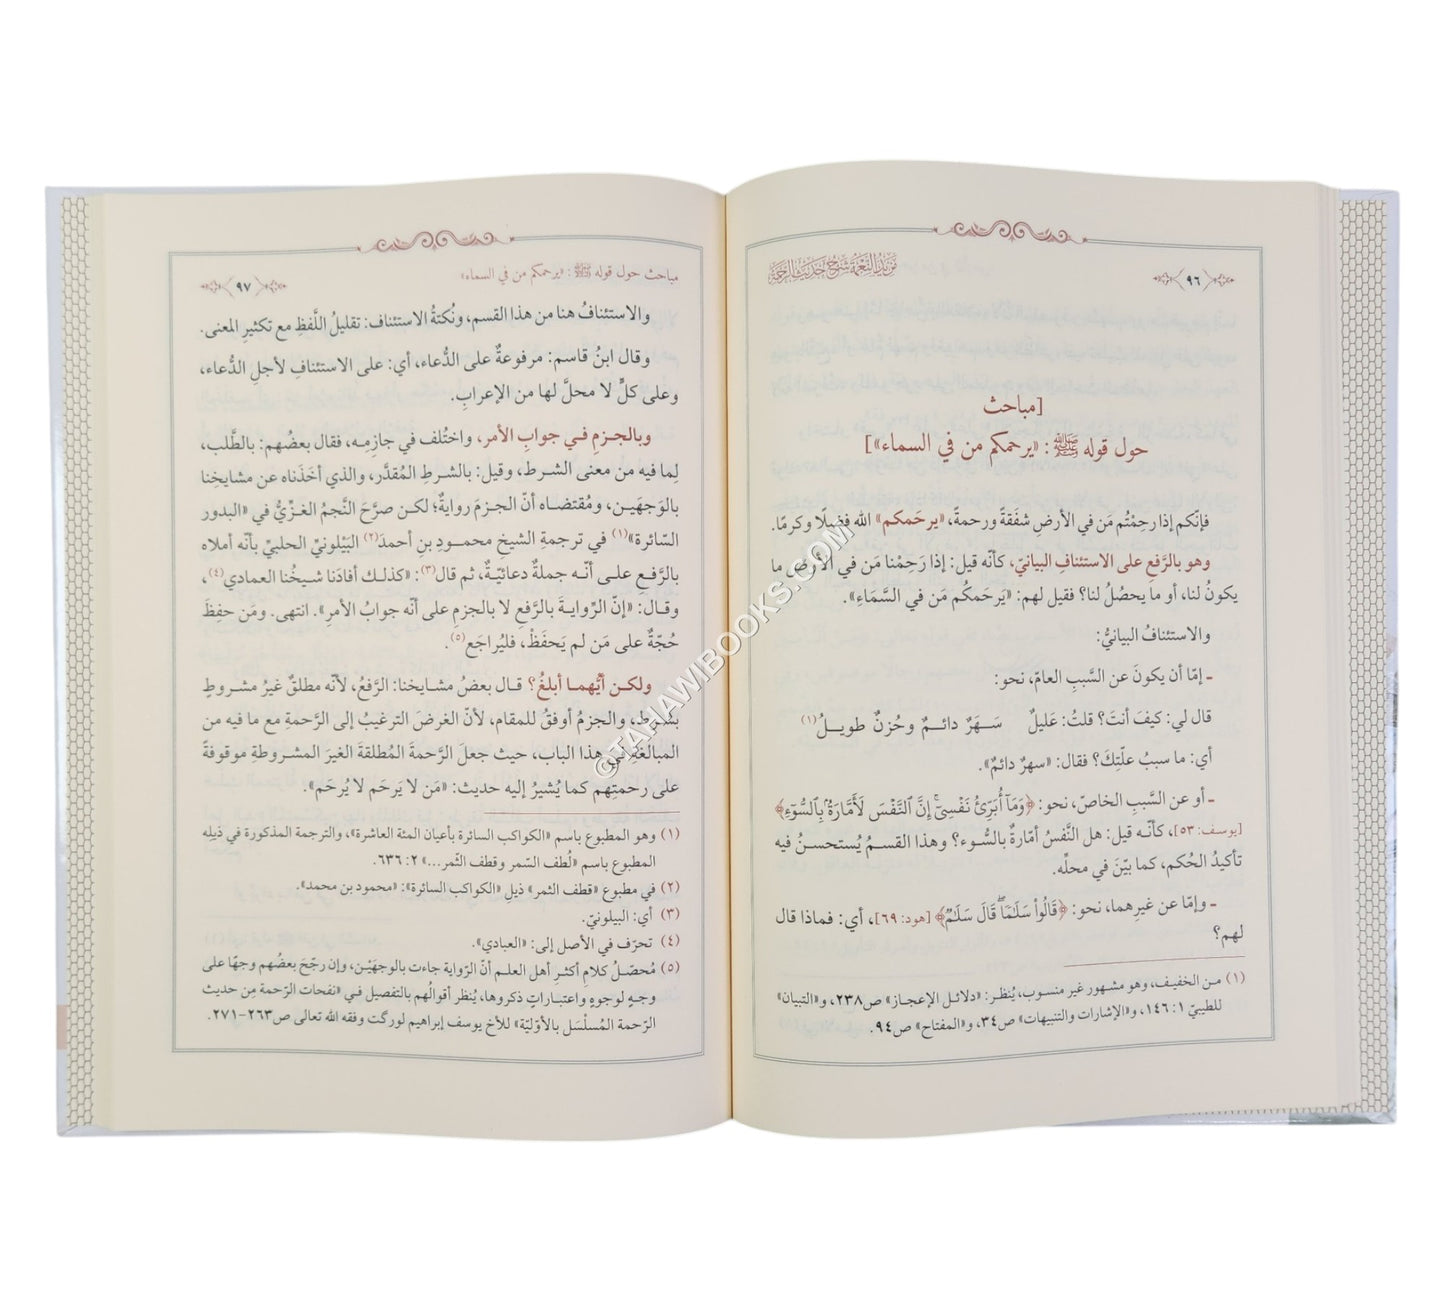 ٩٦
[مباحث
حول قوله ﷺ: «يرحمكم من في السماء»]
فإنّكم إذا رحِمْتُم مَن في الأرضِ شفَقةً ورحمةً، «يرحَمكم» الله فضلًا وكرمًا.
وهو بالرَّفعِ على الاستئنافِ البيانيّ، كأنّه قيل: إذا رَحِمْنا مَن في الأرض ما
يكونُ لنا، أو ما يحصُلُ لنا؟ فقيل لهم: «يَرحَمكُم مَن في السَّمَاءِ».
والاستئنافُ البيانيُّ:
ـ إمّا أن يكونَ عن السَّببِ العامّ، نحو:
قال لي: كيفَ أنتَ؟ قلتُ: عَليلٌ سَـهَرٌ دائـمٌ وحُزنٌ طويـلُ(١)
أي: ما سببُ علّتِكَ؟ فقال: «سهرٌ دائمٌ».
ـ أو عن السَّببِ الخاصّ، نحو: ﴿وَمَآ أُبَرِّئُ نَفْسِىٓ ۚ إِنَّ ٱلنَّفْسَ لَأَمَّارَةٌۢ بِٱلسُّوٓءِ﴾
[يوسف: ٥٣]، كأنّـه قيل: هل النَّفسُ أمّارةٌ بالسُّوء؟ وهذا القسمُ يُستحسنُ فيه
تأكيدُ الحُكم، كما بيّنَ في محلِّه.
ـ وإمّا عن غيرِهما، نحو: ﴿قَالُوا۟ سَلَـٰمًا ۖ قَالَ سَلَـٰمٌ﴾ [هود: ٦٩]، أي: فماذا قال
لهم؟
(١) مـن الخفيـف، وهو مشـهور غير منسـوب، يُنظـر: «دلائـل الإعجاز» ص٢٣٨، و«التبيان»
للطيبيّ ١: ١٤٦، و«الإشارات والتنبيهات» ص٣٤، و«المفتاح» ص٩٤.
مباحث حول قوله ﷺ: «يرحمكم من في السماء»
٩٧
والاستئنافُ هنا من هذا القسم، ونُكتةُ الاستئناف: تقليلُ اللَّفظِ مع تكثيرِ المعنى.
وقال ابنُ قاسم: مرفوعةٌ على الدُّعاء، أي: على الاستئنافِ لأجلِ الدُّعاء،
وعلى كلٍّ لا محلَّ لها من الإعرابِ.
وبالجـزمِ فـي جوابِ الأمر، واختُلف في جازمِـه، فقال بعضُهم: بالطَّلب،
لِما فيه من معنى الشـرط، وقيل: بالشـرطِ المُقدَّر، والذي أخَذناه عن مشايخِنا
بالوَجهَيـن، ومُقتضـاه أنّ الجـزمَ روايةٌ؛ لكـن صرَّحَ النَّجمُ الغـزِّيُّ في «البدور
السّائرة»(١) في ترجمةِ الشيخِ محمـودِ بنِ أحمدَ(٢) البَيْلونيِّ الحلبيِّ بأنّه أملاه
بالرَّفـعِ علـى أنّـه جملةٌ دعائيّـةٌ، ثم قال(٣): «كذلـك أفادَنا شيخُنا العمادي(٤)،
وقـال: «إنّ الرِّوايـةَ بالرَّفعِ لا بالجزمِ على أنّه جوابُ الأمرِ». انتهى. ومَن حفِظَ
حُجّةٌ على مَن لم يَحفَظْ، فليُراجَع(٥).
ولكـن أيُّهمـا أبلغُ؟ قـال بعضُ مشـايخنا: الرَّفعُ، لأنّه مطلقٌ غيرُ مشـروطٍ
بشَرط، والجزمُ أوفقُ للمقام، لأنّ الغرضَ الترغيبُ إلى الرَّحمةِ مع ما فيه من
المبالغةِ في هذا الباب، حيث جعلَ الرَّحمةَ المُطلقةَ الغيرَ المشـروطةِ موقوفةً
على رحمتِهم كما يُشيرُ إليه حديث: «مَن لا يَرحَم لا يُرحَم».
(١) وهو المطبوع باسم «الكواكب السائرة بأعيان المئة العاشرة»، والترجمة المذكورة في ذيلِه
المطبوع باسم «لُطف السّمر وقطف الثّمر...» ٢: ٦٣٦.
(٢) في مطبوع «قطف الثمر» ذيلِ «الكواكب السائرة»: «محمود بن محمد».
(٣) أي: البيلونيّ.
(٤) تحرّف في الأصل إلى: «العبادي».
(٥) مُحصّـلُ كلامِ أكثـرِ أهل العلـم أنّ الرّواية جاءت بالوجهَيْـن، وإن رجّحَ بعضُهم وجهًا على
وجـهٍ لوجـوهٍ واعتبـاراتٍ ذكروهـا، يُنظر أقوالُهم بالتفصيل فـي «نفحات الرّحمة مِن حديث
الرّحمة المُسلْسَل بالأوّليّة» للأخ يوسف إبراهيم لورگت وفقه الله تعالى ص٢٦٣-٢٧١.
©TAHAWIBOOKS.COM